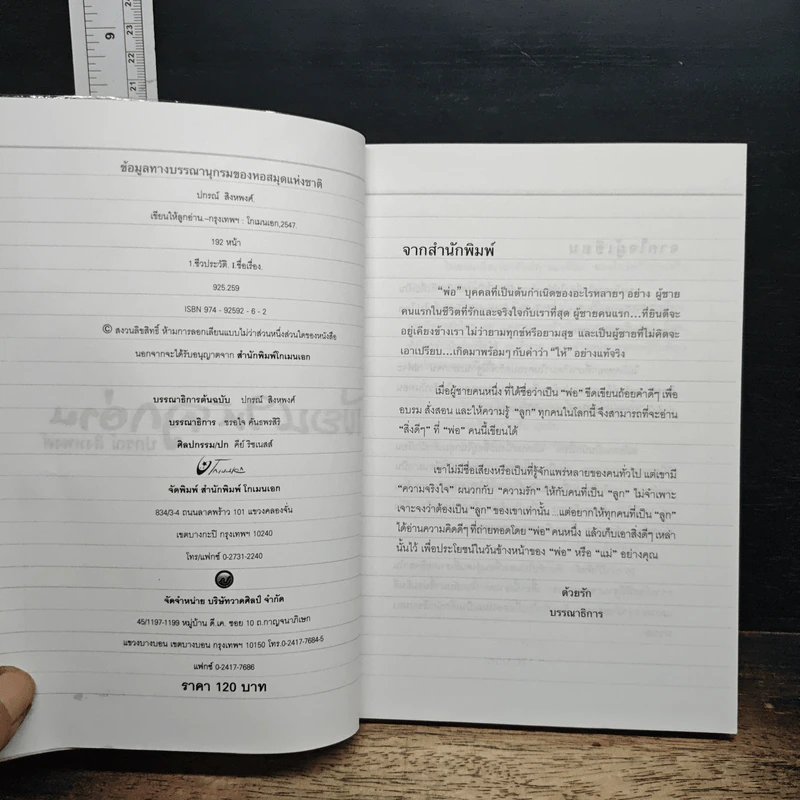 9
24
23
22
21
ข้อมูลทางบรรณานุกรมของหอสมุดแห่งชาติ
ปกรณ์ สิงหพงศ์
เขียนให้ลูกอ่าน.-กรุงเทพฯ : โกเมนเอก,2547.
192 หน้า
1.ชีวประวัติ. I.ชื่อเรื่อง.
925.259
ISBN 974 - 92592 - 6 - 2
© สงวนลิขสิทธิ์ ห้ามการลอกเลียนแบบไม่ว่าส่วนหนึ่งส่วนใดของหนังสือ
นอกจากจะได้รับอนุญาตจาก สำนักพิมพ์โกเมนเอก
บรรณาธิการต้นฉบับ ปกรณ์ สิงหพงศ์
บรรณาธิการ ชรอใจ คันธพรสิริ
ศิลปกรรม/ปก คีย์ ริชเนสส์
จัดพิมพ์ สำนักพิมพ์ โกเมนเอก
834/3-4 ถนนลาดพร้าว 101 แขวงคลองจั่น
เขตบางกะปิ กรุงเทพฯ 10240
โทร/แฟกซ์ 0-2731-2240
จัดจำหน่าย บริษัทวาดศิลป์ จำกัด
45/1197-1199 หมู่บ้าน ดี.เค. ซอย 10 ถ.กาญจนาภิเษก
แขวงบางบอน เขตบางบอน กรุงเทพฯ 10150 โทร.0-2417-7684-5
แฟกซ์ 0-2417-7686
ราคา 120 บาท
จากสำนักพิมพ์
"พ่อ" บุคคลที่เป็นต้นกำเนิดของอะไรหลายๆ อย่าง ผู้ชาย
คนแรกในชีวิตที่รักและจริงใจกับเราที่สุด ผู้ชายคนแรก...ที่ยินดีจะ
อยู่เคียงข้างเรา ไม่ว่ายามทุกข์หรือยามสุข และเป็นผู้ชายที่ไม่คิดจะ
เอาเปรียบ...เกิดมาพร้อมๆ กับคำว่า "ให้" อย่างแท้จริง
เมื่อผู้ชายคนหนึ่ง ที่ได้ชื่อว่าเป็น "พ่อ" ขีดเขียนถ้อยคำดีๆ เพื่อ
อบรม สั่งสอน และให้ความรู้ "ลูก" ทุกคนในโลกนี้ จึงสามารถที่จะอ่าน
"สิ่งดีๆ" ที่ "พ่อ" คนนี้เขียนได้
เขาไม่มีชื่อเสียงหรือเป็นที่รู้จักแพร่หลายของคนทั่วไป แต่เขามี
"ความจริงใจ" ผนวกกับ "ความรัก" ให้กับคนที่เป็น "ลูก" ไม่จำเพาะ
เจาะจงว่าต้องเป็น "ลูก" ของเขาเท่านั้น ...แต่อยากให้ทุกคนที่เป็น "ลูก"
ได้อ่านความคิดดีๆ ที่ถ่ายทอดโดย "พ่อ" คนหนึ่ง แล้วเก็บเอาสิ่งดีๆ เหล่า
นั้นไว้ เพื่อประโยชน์ในวันข้างหน้าของ "พ่อ" หรือ "แม่" อย่างคุณ
ด้วยรัก
บรรณาธิการ